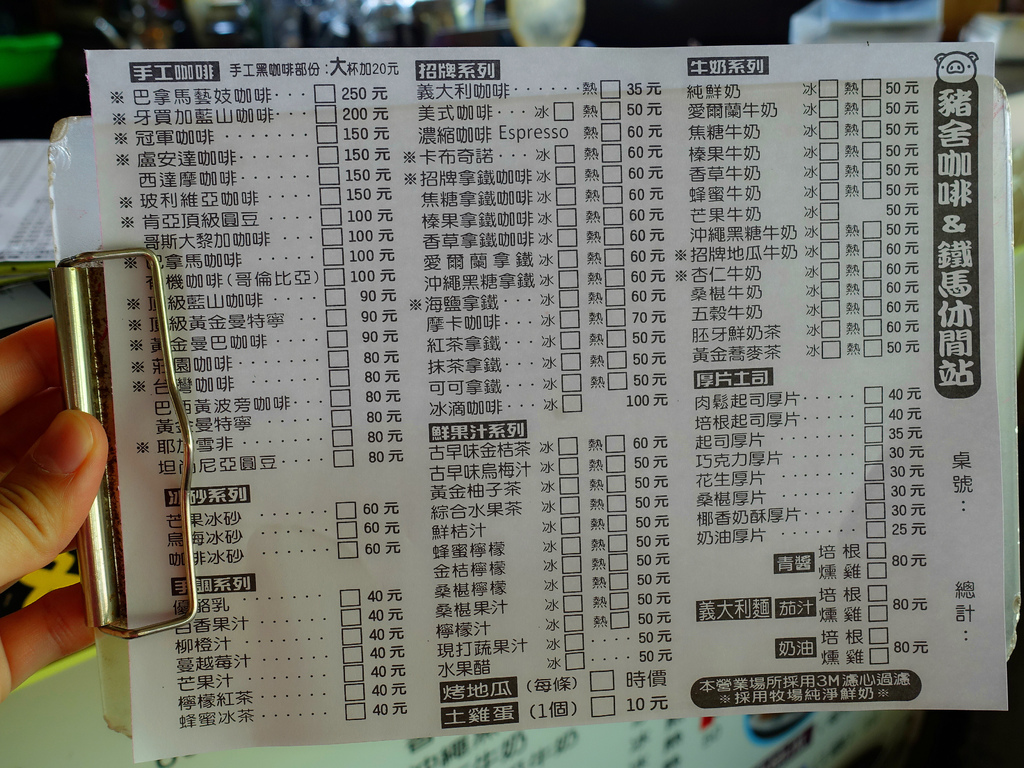 手工咖啡 手工黑咖啡部份：大杯加20元
※ 巴拿馬藝妓咖啡 □ 250元
※ 牙買加藍山咖啡 □ 200元
※ 冠軍咖啡 □ 150元
※ 盧安達咖啡 □ 150元
西達摩咖啡 □ 150元
※ 玻利維亞咖啡 □ 150元
※ 肯亞頂級圓豆 □ 100元
哥斯大黎加咖啡 □ 100元
巴拿馬咖啡 □ 100元
有機咖啡(哥倫比亞) □ 100元
※ 頂級藍山咖啡 □ 90元
※ 頂級黃金曼特寧 □ 90元
※ 黃金曼巴咖啡 □ 90元
※ 莊園咖啡 □ 80元
※ 台灣咖啡 □ 80元
巴西黃波旁咖啡 □ 80元
黃金曼特寧 □ 80元
※ 耶加雪非 □ 80元
坦尚尼亞圓豆 □ 80元
冰砂系列
芒果冰砂 □ 60元
烏梅冰砂 □ 60元
咖啡冰砂 □ 60元
手調系列
優酪乳 □ 40元
百香果汁 □ 40元
柳橙汁 □ 40元
蔓越莓汁 □ 40元
芒果汁 □ 40元
檸檬紅茶 □ 40元
蜂蜜冰茶 □ 40元
招牌系列
義大利咖啡 熱□ 35元
美式咖啡 冰□ 熱□ 50元
濃縮咖啡 Espresso 熱□ 60元
※卡布奇諾 冰□ 熱□ 60元
※招牌拿鐵咖啡 冰□ 熱□ 60元
焦糖拿鐵咖啡 冰□ 熱□ 60元
榛果拿鐵咖啡 冰□ 熱□ 60元
香草拿鐵咖啡 冰□ 熱□ 60元
愛爾蘭拿鐵 冰□ 熱□ 60元
沖繩黑糖拿鐵 冰□ 熱□ 60元
※海鹽拿鐵 冰□ 熱□ 60元
摩卡咖啡 冰□ 熱□ 70元
紅茶拿鐵 冰□ 熱□ 50元
抹茶拿鐵 冰□ 熱□ 50元
可可拿鐵 冰□ 熱□ 50元
冰滴咖啡 冰□ 100元
鮮果汁系列
古早味金桔茶 冰□ 熱□ 60元
古早味烏梅汁 冰□ 熱□ 50元
黃金柚子茶 冰□ 熱□ 50元
綜合水果茶 冰□ 熱□ 50元
鮮桔汁 冰□ 熱□ 50元
蜂蜜檸檬 冰□ 熱□ 50元
金桔檸檬 冰□ 熱□ 50元
桑椹檸檬 冰□ 熱□ 50元
桑椹果汁 冰□ 熱□ 50元
檸檬汁 冰□ 熱□ 50元
現打蔬果汁 冰□ 50元
水果醋 冰□ 50元
烤地瓜 (每條) □ 時價
土雞蛋 (1個) □ 10元
牛奶系列
純鮮奶 冰□ 熱□ 50元
愛爾蘭牛奶 冰□ 熱□ 50元
焦糖牛奶 冰□ 熱□ 50元
榛果牛奶 冰□ 熱□ 50元
香草牛奶 冰□ 熱□ 50元
蜂蜜牛奶 冰□ 熱□ 50元
芒果牛奶 冰□ 50元
沖繩黑糖牛奶 冰□ 熱□ 50元
※招牌地瓜牛奶 冰□ 熱□ 50元
※杏仁牛奶 冰□ 熱□ 60元
桑椹牛奶 冰□ 熱□ 50元
五穀牛奶 冰□ 熱□ 60元
胚牙鮮奶茶 冰□ 熱□ 60元
黃金蕎麥茶 冰□ 熱□ 50元
厚片土司
肉鬆起司厚片 □ 40元
培根起司厚片 □ 40元
起司厚片 □ 35元
巧克力厚片 □ 30元
花生厚片 □ 30元
桑椹厚片 □ 30元
椰香奶酥厚片 □ 30元
奶油厚片 □ 25元
義大利麵
青醬 培根□ 燻雞□ 80元
茄汁 培根□ 燻雞□ 80元
奶油 培根□ 燻雞□ 80元
本營業場所採用3M濾心過濾
※採用牧場純淨鮮奶※
豬舍咖啡&鐵馬休閒站
桌號：
總計：